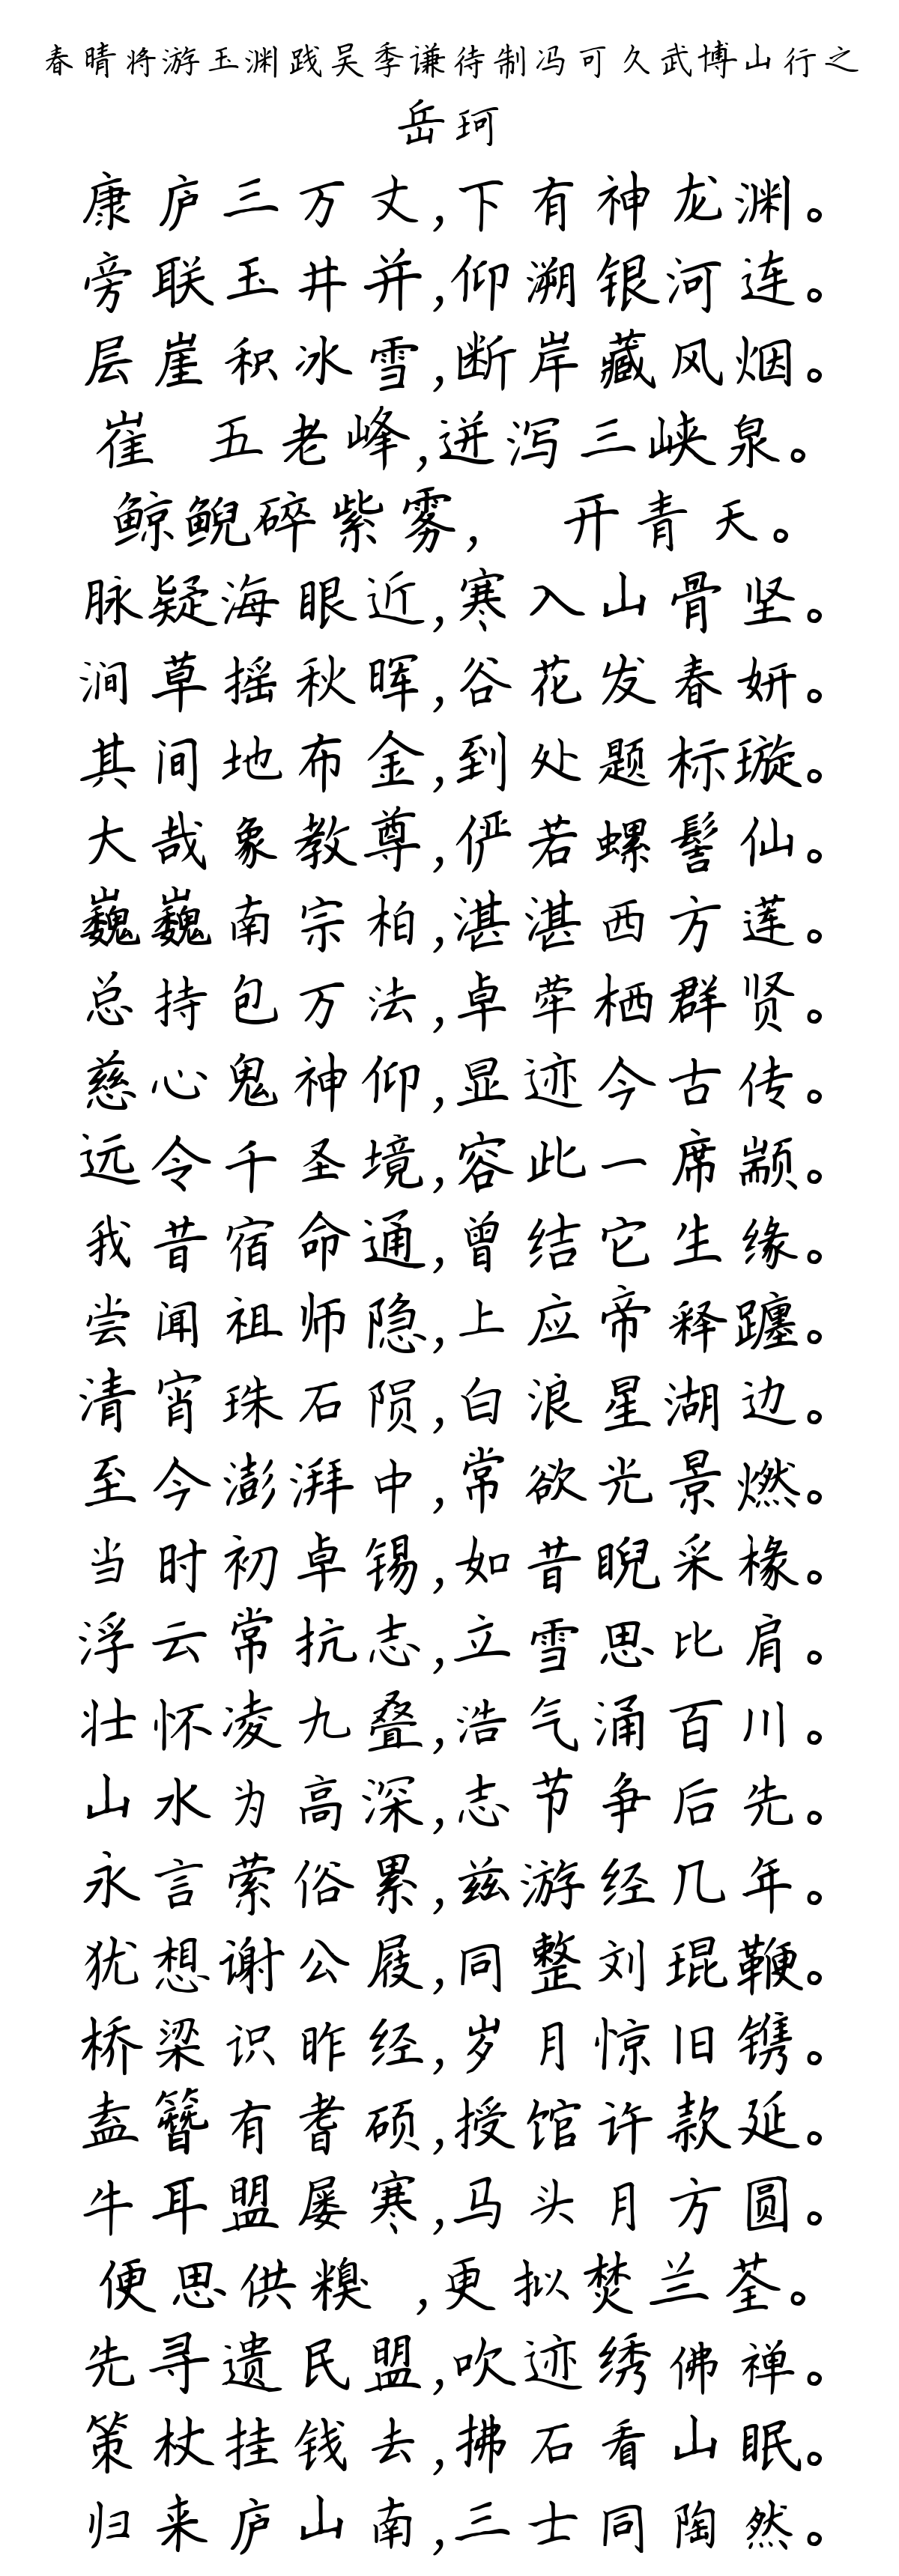 春晴将游玉渊践吴季谦待制冯可久武博山行之
岳珂
康庐三万丈,下有神龙渊。
旁联玉井并,仰溯银河连。
层崖积冰雪,断岸藏风烟。
崔 五老峰,迸泻三峡泉。
鲸鲵碎紫雾, 开青天。
脉疑海眼近,寒入山骨坚。
涧草摇秋晖,谷花发春妍。
其间地布金,到处题标璇。
大哉象教尊,俨若螺髻仙。
巍巍南宗柏,湛湛西方莲。
总持包万法,卓荦栖群贤。
慈心鬼神仰,显迹今古传。
远令千圣境,容此一席颛。
我昔宿命通,曾结它生缘。
尝闻祖师隐,上应帝释躔。
清宵珠石陨,白浪星湖边。
至今澎湃中,常欲光景燃。
当时初卓锡,如昔睨采椽。
浮云常抗志,立雪思比肩。
壮怀凌九叠,浩气涌百川。
山水为高深,志节争后先。
永言萦俗累,兹游经几年。
犹想谢公屐,同整刘琨鞭。
桥梁识昨经,岁月惊旧镌。
盍簪有耆硕,授馆许款延。
牛耳盟屡寒,马头月方圆。
便思供糗 ,更拟焚兰荃。
先寻遗民盟,吹迹绣佛禅。
策杖挂钱去,拂石看山眠。
归来庐山南,三士同陶然。